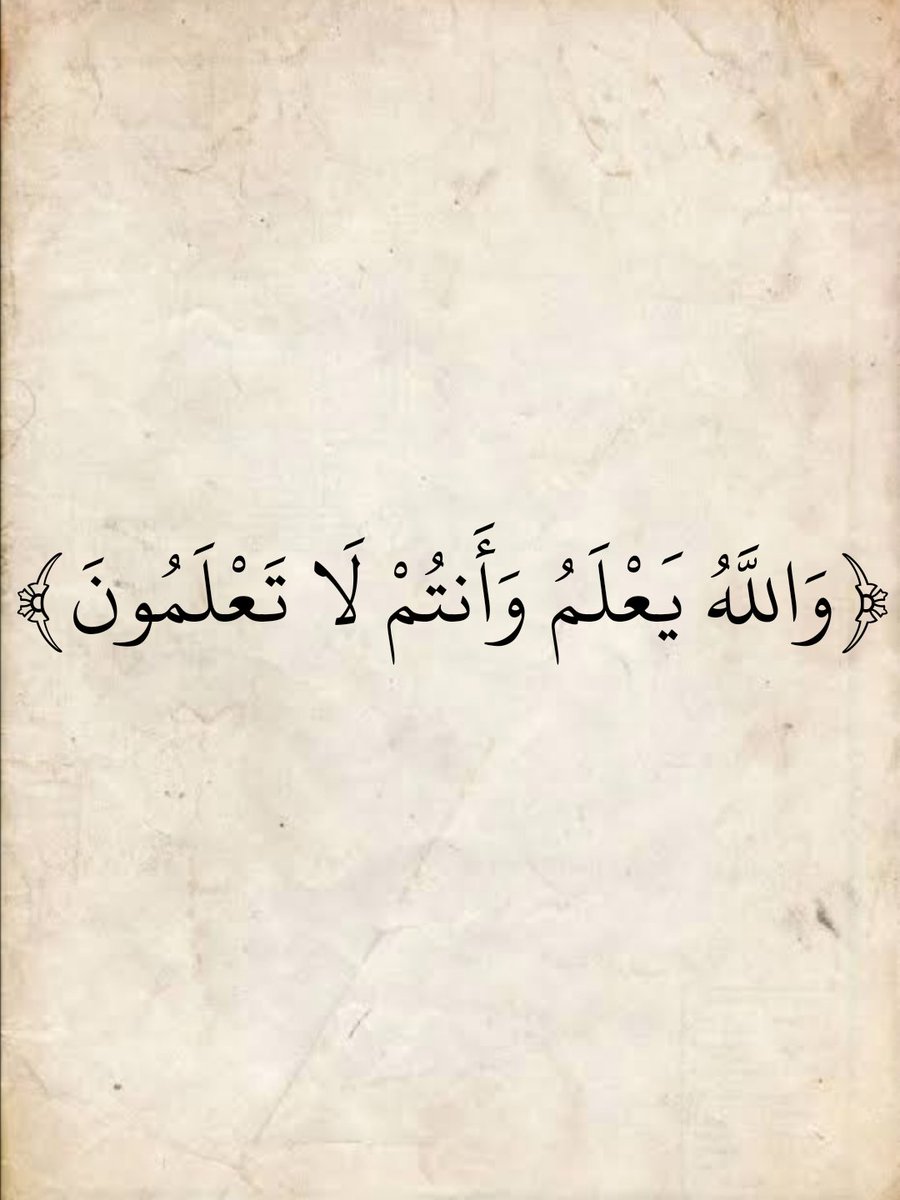 ﴿وَاللَّهُ يَعْلَمُ وَأَنتُمْ لَا تَعْلَمُونَ﴾